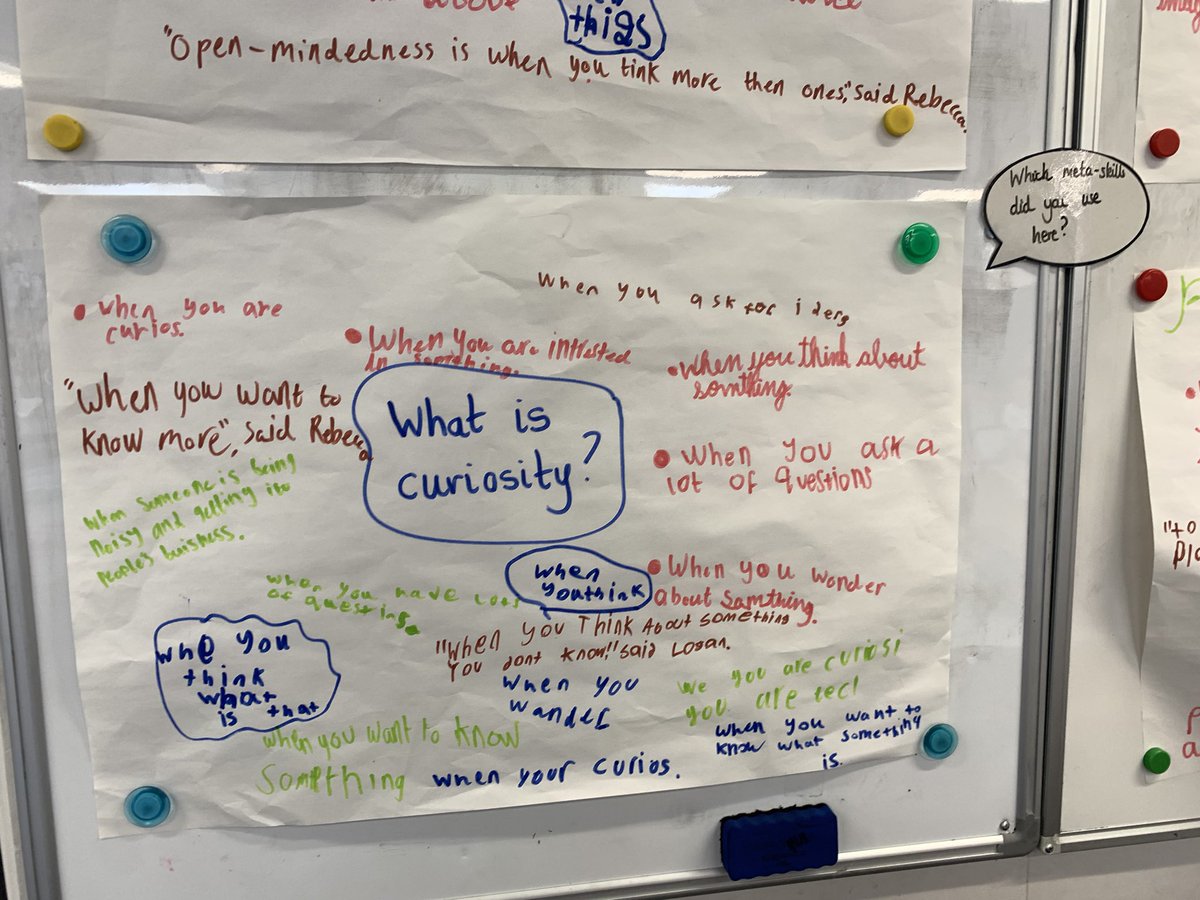 above
things
"Open-mindedness is when you tink more then ones," said Rebecca.
Which meta-skills
did you use
here?
When you ask for iders
• when you are
curios.
• When you are intrested
in somthing.
• when you think about
somthing.
"When you want to
know more", said Rebecca
What is
curiosity?
• When you ask a
lot of questions
When someone is being
noisy and getting into
peoples buisness.
when you have lots
of questings
when
you think
• When you wonder
about somthing.
"When you Think About something
you dont know!" said Logan.
whe you
think
what
is that
When you
wander
we you are curiosi
you are
when you want to
know what something
is.
when you want to know
something
when your curios.
"to